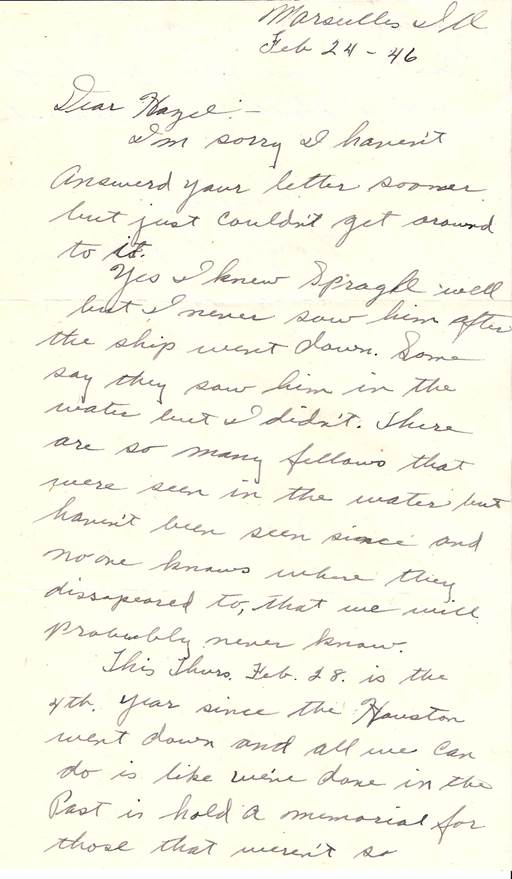 Marseilles Ill
Feb 24-46
Dear Hazel:-
I'm sorry I haven't
answerd your letter sooner
but just couldn't get around
to it.
Yes I knew Spragle well
but I never saw him after
the ship went down. Some
say they saw him in the
water but I didn't. There
are so many fellows that
were seen in the water but
haven't been seen since and
no one knows where they
dissapeared to, that we will
probably never know.
This Thurs. Feb. 28. is the
4th. year since the Houston
went down and all we can
do is like we've done in the
Past is hold a memorial for
those that weren't so